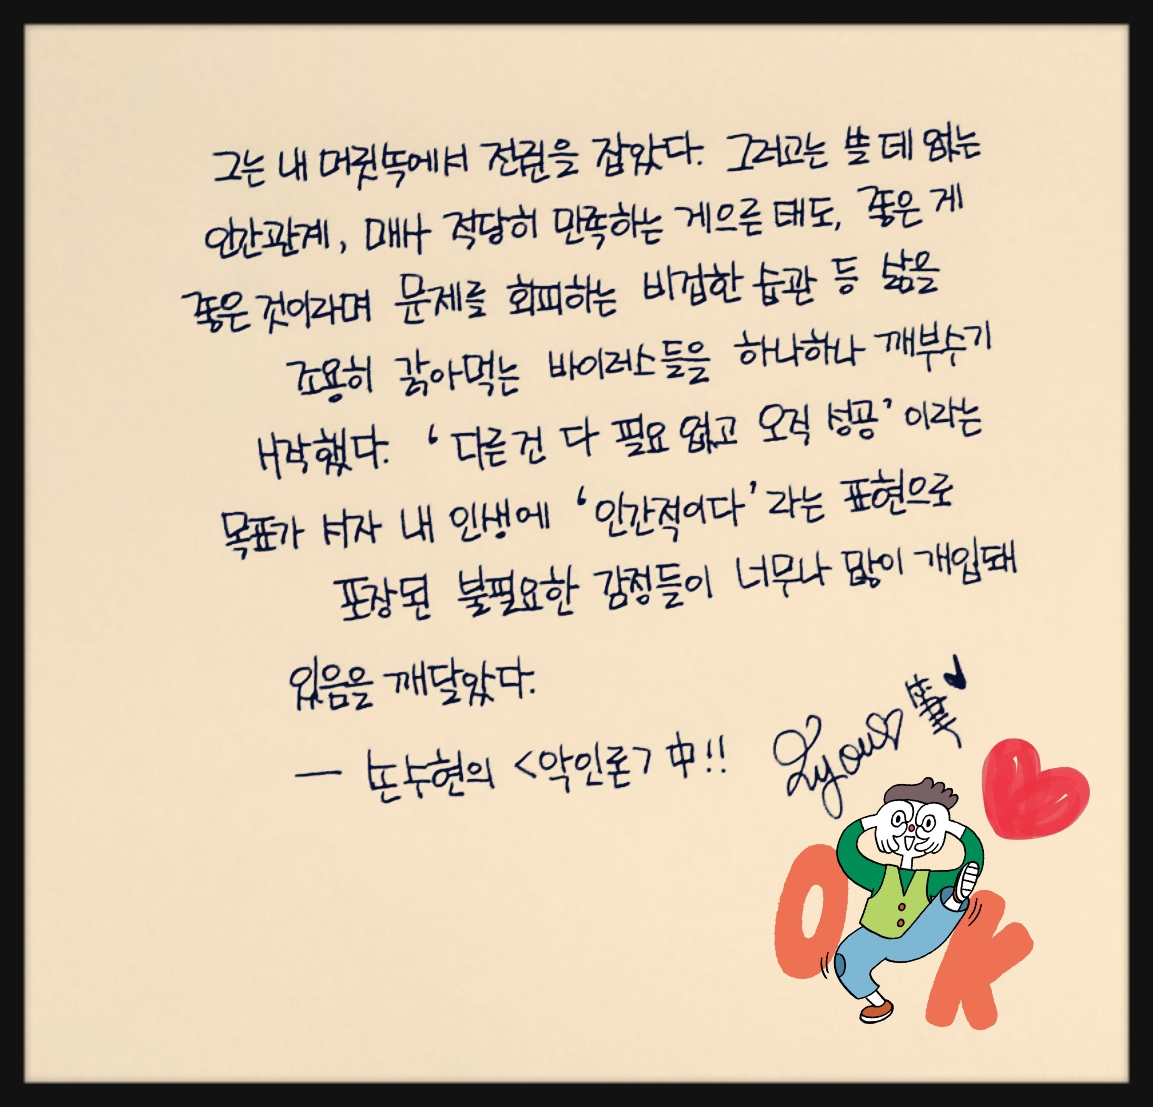 그는 내 머릿속에서 전권을 잡았다. 그러고는 쓸 데 없는
인간관계, 매사 적당히 만족하는 게으른 태도, 좋은 게
좋은 것이라며 문제를 회피하는 비겁한 습관 등 삶을
조용히 갉아먹는 바이러스들을 하나하나 깨부수기
시작했다. ‘다른 건 다 필요 없고 오직 성공’ 이라는
목표가 서자 내 인생에 ‘인간적이다’ 라는 표현으로
포장된 불필요한 감정들이 너무나 많이 개입돼
있음을 깨달았다.
— 손수현의 <악인론> 中!!
OK